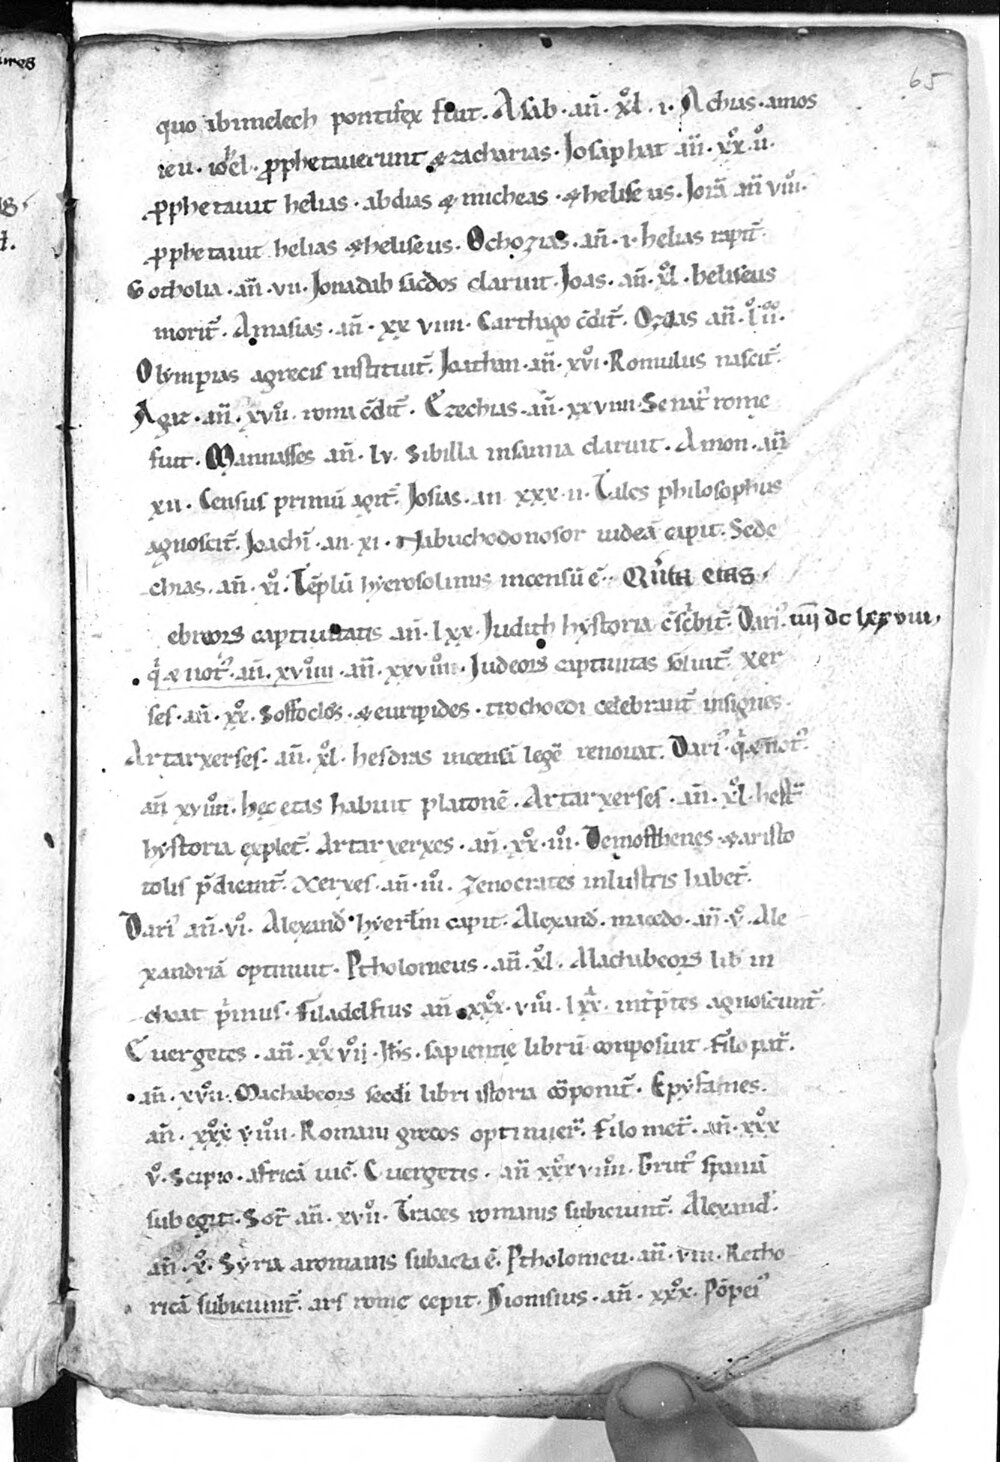 65
quo ibimelech pontifex fuit. Asab. añ. xl. i. Achias. amos
ieu. iohel. ꝓphetauerunt & zacharias. Josaphat añ. xx. u.
ꝓphetauit helias. abdias & micheas. & heliseus. Jorã añ uiii.
ꝓphetauit helias & heliseus. Ochozias. añ. i. helias rapit̃.
Gotholia. añ. uii. Jonadab sac̃dos claruit. Joas. añ. xl. heliseus
morit̃. Amasias. añ. xx uiiii. Carthago c̃dit̃. Ozias añ. lii.
Olympias agrecis instituit̃. Joathan. añ. xui. Romulus nascit̃.
Agit. añ. xui. roma c̃dit̃. Ezechias. añ. xxuiiii. Senat᷒ rome
fuit. Mannasses añ. lu. Sibilla insamia claruit. Amon. añ
xii. Census primũ agit̃. Josias. an xxx. ii. Tales philosophus
agnoscit̃. Joachĩ. an xi. Nabuchodonosor iudeã capit. Sede
chias. añ. xi. Tẽplũ hyerosolimis incensũ ẽ. Qũta etas.
ebreors captiuitatis añ. lxx. Judith hystoria c̃scbit̃. Dari᷒. iiii dc lxxuiii.
q̃ & not᷒. añ. xuiiii. añ. xxuiiii. Judeors captiuitas soluit̃. Xer
ses. añ. xx. Soffocles. & euripides. trochoedi celebrant̃ insignes.
Artarxerses. añ. xl. hesdras incensã legẽ renouat. Dari᷒. q̃ & not᷒.
añ xuiiii. hec etas habuit platonẽ. Artarxerses. añ. xl. hest̃
hystoria explet̃. Artarxerxes. añ. xx. iii. Demosthenes. & aristo
tolis p̃dicant̃. Xerxes. añ. iii. Zenocrates inlustris habet̃.
Dari᷒ añ. ui. Alexand̃. hyerlm̃ capit. Alexand̃. macedo. añ. u. Ale
xandriã optinuit. Ptholomeus. añ. xl. Machabeors lib̃ in
choat p̃mus. Filadelfius añ. xxx. uiii. lxx. int̃p̃tes agnoscunt̃
Euergetes. añ. xx uij. Jh̃s. sapientie librũ composuit. Filopat̃.
añ. xuii. Machabeors sec̃di libri istoria cõponit̃. Epyfanes.
añ. xxx uiiii. Romani grecos optinuer̃. Filomet̃. añ. xxx
u. Scipio. africã uic̃. Euergetis. añ xxx uiiii. Brut᷒ spaniã
subegit. Sot̃ añ. xuii. Traces romanis subiciunt̃. Alexand̃.
añ. x. Syria aromanis subacta ẽ. Ptholomeu. añ. uiii. Retho
ricã subiciunt̃. ars rome cepit. Dionisius. añ. xxx. Põpei᷒